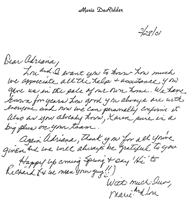 Marie DeRidder
2/28/01
Dear Adriana,
Lou and I want you to know how much
we appreciate all the help & assistance you
gave us in the sale of our own home. We have
known for years how good you always are with
everyone and now we can personally confirm it
Also as you already know, Karen, you're in a
big plus on your team.
Again Adriana, thank you for all you've
given but we will always be grateful to you
Happy Up coming Spring & say "Hi" to
Richard & we mean you guy!!)
With much love,
Marie & Lou